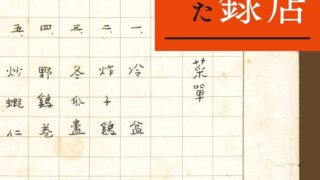 店
錄
た
菜單
一、冷盆
二、炸子鷄
三、冬瓜盅
四、野鷄卷
五、炒蝦仁